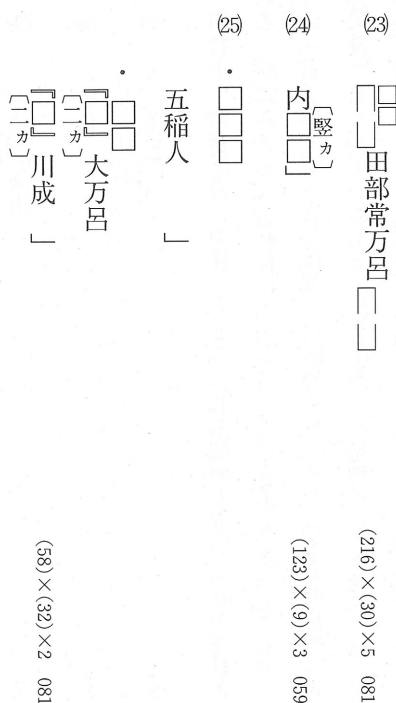 (23)
□□
[  ]田部常万呂[  ]
(216)×(30)×5 081
(24)
〔竪ヵ〕
内□□」
(123)×(9)×3 059
(25)
・□□□
五稲人 」
・□□
『□』大万呂
〔二ヵ〕
『□』川成 」
〔二ヵ〕
(58)×(32)×2 081